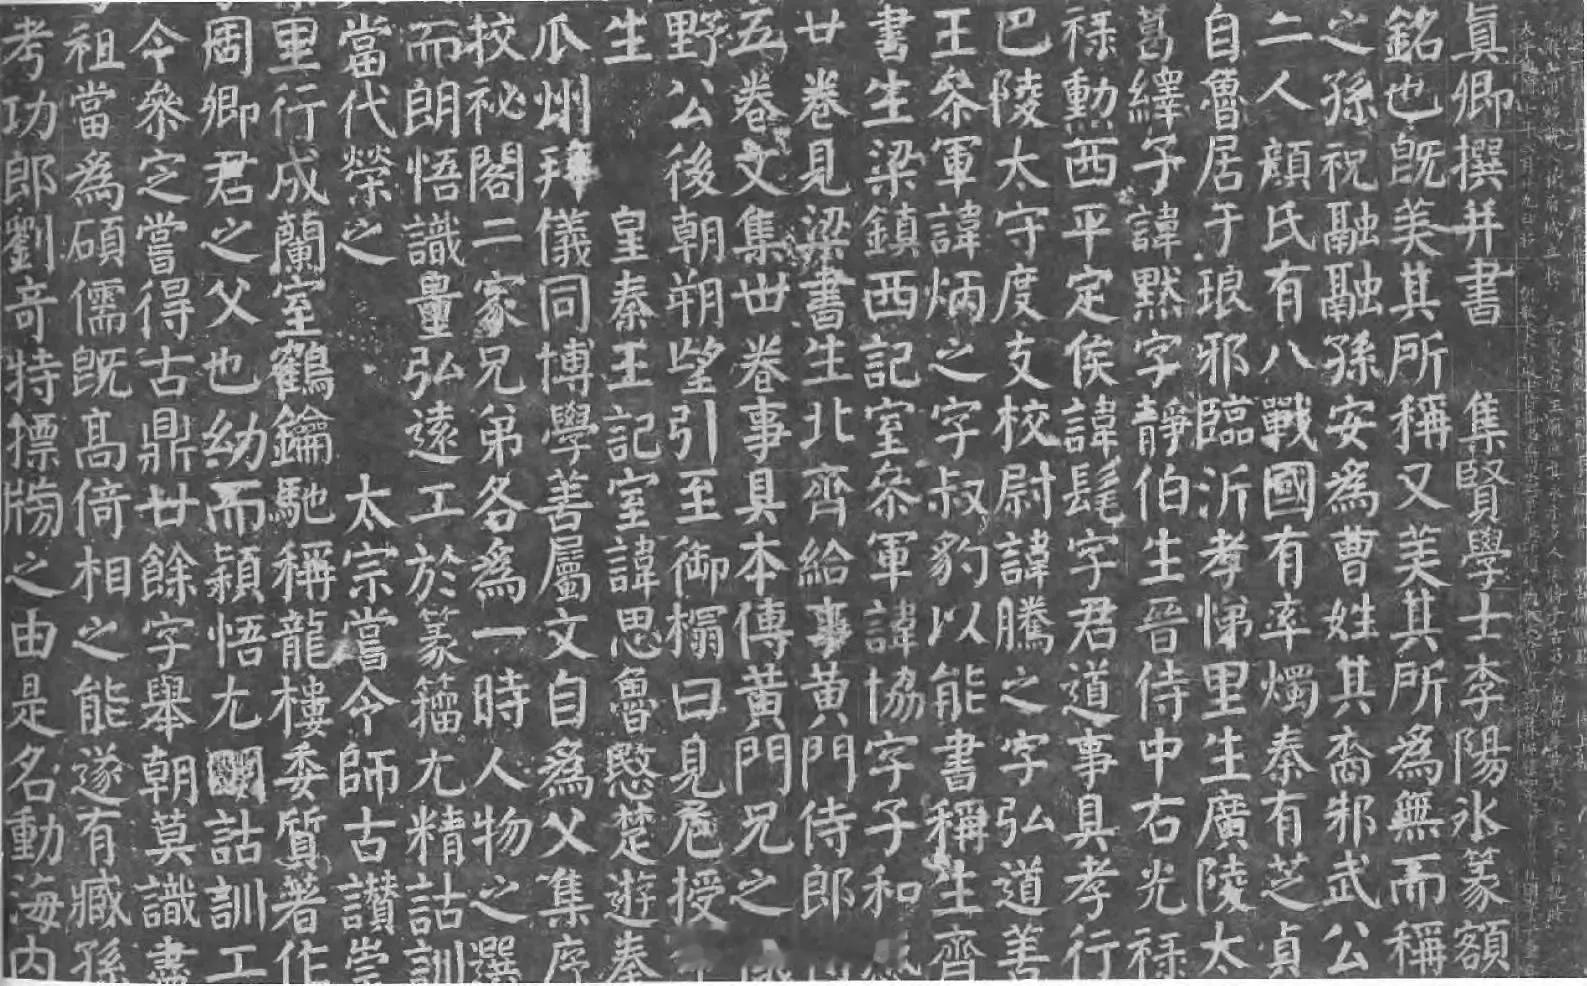 真卿撰并書 集賢學士李陽冰篆額
銘也既美其所稱又美其所為無而稱
之孫祝融融孫安為曹姓其裔邾武公
二人顏氏有八戰國有率燭秦有芝貞
自魯居于琅邪臨沂孝悌里生廣陵太
葛繹子諱默字靜伯生晉侍中右光祿
祿勳西平定侯諱髦字君道事具孝行
巴陵太守度支校尉諱騰之字弘道善
王叅軍諱炳之字叔豹以能書稱生齊
書生梁鎮西記室叅軍諱協字子和
廿卷見梁書生北齊給事黃門侍郎
五卷文集卅卷事具本傳黃門兄之
野公後朝朔望引至御榻曰見危授
生 皇秦王記室諱思魯愍楚遊秦
瓜州拜儀同博學善屬文自為父集序
校祕閣二家兄弟各為一時人物之選
而朗悟識量弘遠工於篆籀尤精詁訓
當代榮之 太宗嘗令師古讃崇
里行成蘭室鶴鑰馳稱龍樓委質著作
周卿君之父也幼而穎悟尤明詁訓工
令叅定嘗得古鼎廿餘字舉朝莫識盡
祖當為碩儒既高倚相之能遂有臧孫
考功郎劉奇特摽牓之由是名動海內